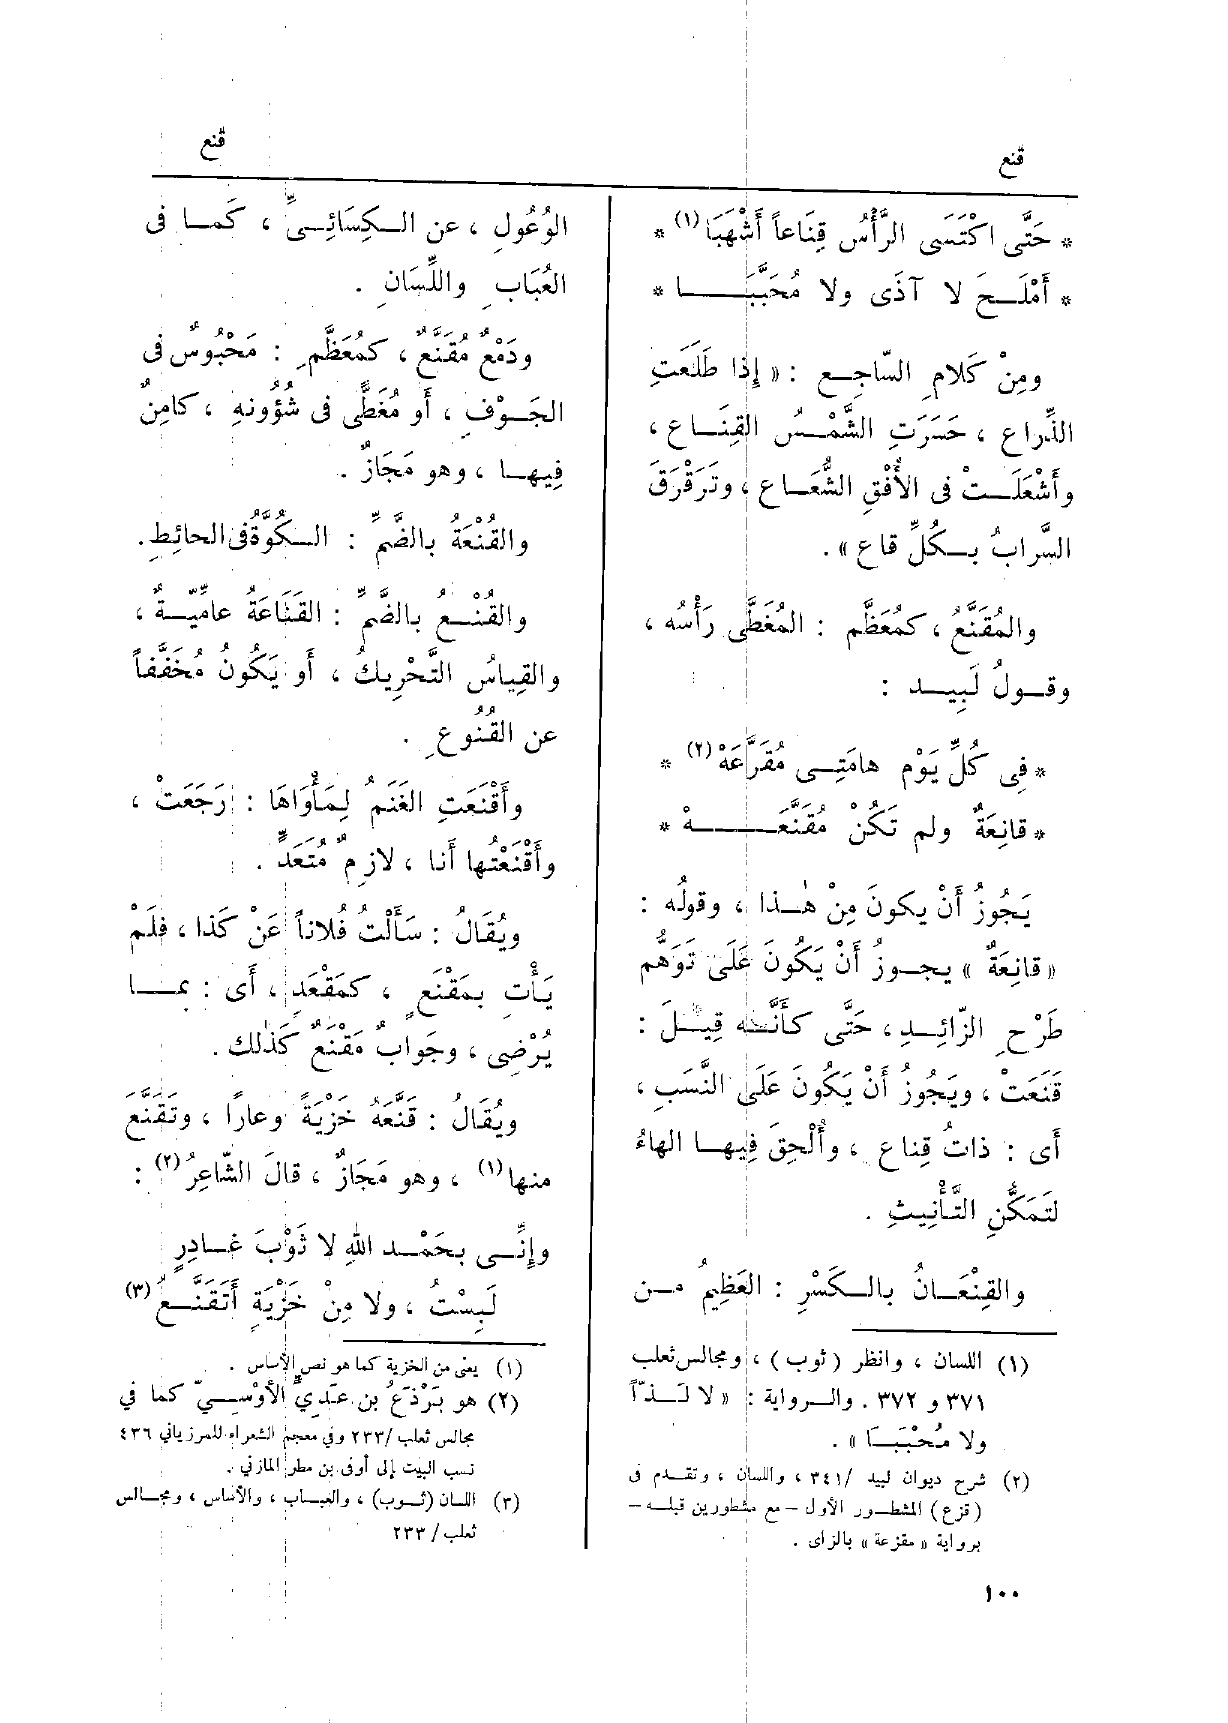 قنع
قنع
* حَتَّى اكْتَسَى الرَّأْسُ قِنَاعاً أَشْهَبَا (١) *
* أَمْلَـحَ لا آذَى ولا مُحَبَّبَـــا *
ومِنْ كَلامِ السّاجِـعِ : « إِذا طَلَعَتِ
الذِّراع ، حَسَرَتِ الشَّمْـسُ القِنَـاع ،
وأَشْعَلَـتْ فى الأُفْقِ الشُّعَـاع ، وتَرَقْرَقَ
السَّرابُ بـكُلِّ قاع » .
والمُقَنَّعُ ، كمُعَظَّم : المُغَطَّى رَأْسُه ،
وقـولُ لَبِيـد :
* فِى كُلِّ يَوْم هامَتِـى مُقَرَّعَهْ (٢) *
* قانِعَةٌ ولم تَكُنْ مُقَنَّعَـــهْ *
يَجُوزُ أَنْ يكونَ مِنْ هٰـذا ، وقولُه :
« قانِعَةٌ » يجـوزُ أَنْ يَكُونَ عَلَى تَوَهُّم
طَرْحِ الزّائِـدِ ، حَتَّى كأَنَّـه قِيـلَ :
قَنَعَتْ ، ويَجُوزُ أَنْ يَكُونَ عَلَى النَّسَبِ ،
أَى : ذاتُ قِناعٍ ، وأُلْحِقَ فِيهـا الهاءُ
لتَمَكُّنِ التَّأْنِيثِ .
والقِنْعَـانُ بالـكَسْرِ : العَظِيمُ مـن
(١) اللسان ، وانظر (ثوب) ، ومجالس ثعلب
٣٧١ و ٣٧٢ . والـرواية : « لا لَـذّاً
ولا مُحْبَبَـا » .
(٢) شرح ديوان لبيد /٣٤١ ، واللسان ، وتقـدم فى
(قزع) المشطـور الأول – مع مشطورين قبلـه –
برواية « مقزعة » بالزاى .
١٠٠
الوُعُولِ ، عن الـكِسَائِـىِّ ، كَمـا فى
العُبَابِ واللِّسَانِ .
ودَمْعٌ مُقَنَّعٌ ، كمُعَظَّمٍ : مَحْبُوسٌ فى
الجَـوْفِ ، أَو مُغَطًّى فى شُؤونهِ ، كامِنٌ
فِيهـا ، وهو مَجَازٌ .
والقُنْعَةُ بالضَّمِّ : الـكُوَّةُ فى الحائِطِ .
والقُنْـعُ بالضَّمِّ : القَنَاعَةُ عامِّيّـةٌ ،
والقِياسُ التَّحْرِيكُ ، أَو يَكُونُ مُخَفَّفاً
عن القُنُوعِ .
وأَقْنَعَتِ الغَنَمُ لِمَأْوَاهَا : رَجَعَتْ ،
وأَقْنَعْتُها أَنا ، لازِمٌ مُتَعَدٍّ .
ويُقَالُ : سَأَلْتُ فُلاناً عَنْ كَذا ، فلَمْ
يَأْتِ بمَقْنَعٍ ، كمَقْعَدٍ ، أَى : بمـا
يُرْضِى ، وجَوابٌ مَقْنَعٌ كَذٰلك .
ويُقَالُ : قَنَّعَهُ خَزْيَةً وعارًا ، وتَقَنَّعَ
منها (١) ، وهو مَجَازٌ ، قالَ الشّاعِرُ (٢) :
وإِنِّـى بحَمْـدِ اللهِ لا ثَوْبَ غـادِرٍ
لَبِسْتُ ، ولا مِنْ خَزْيَةٍ أَتَقَنَّـعُ (٣)
(١) يعنى من الخزية كما هو نص الأساس .
(٢) هو بَرْذَعُ بن عَدِيٍّ الأَوْسِـيّ كما في
مجالس ثعلب/٢٣٣ وفي معجم الشعراء للمرزباني ٤٣٦
نسب البيت إلى أوفى بن مطر المازني .
(٣) اللسان (ثـوب) ، والعبـاب ، والأساس ، ومجـالس
ثعلب/ ٢٣٣